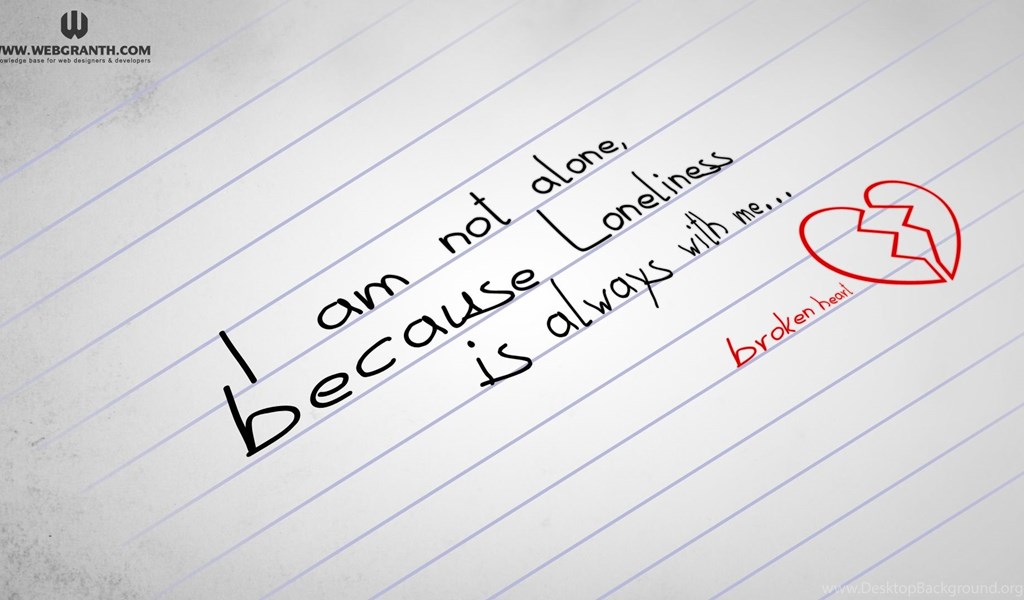 WWW.WEBGRANTH.COM
knowledge base for web designers & developers
I am not alone,
because Loneliness
is always with me...
broken heart
www.DesktopBackground.org